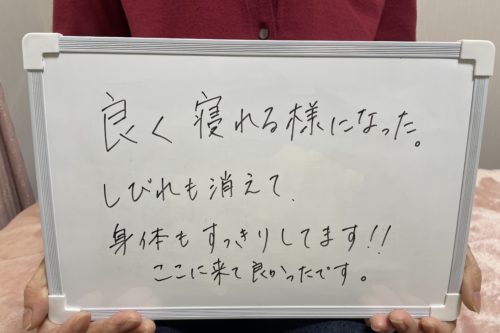 良く寝れる様になった。
しびれも消えて、
身体もすっきりしてます!!
ここに来て良かったです。